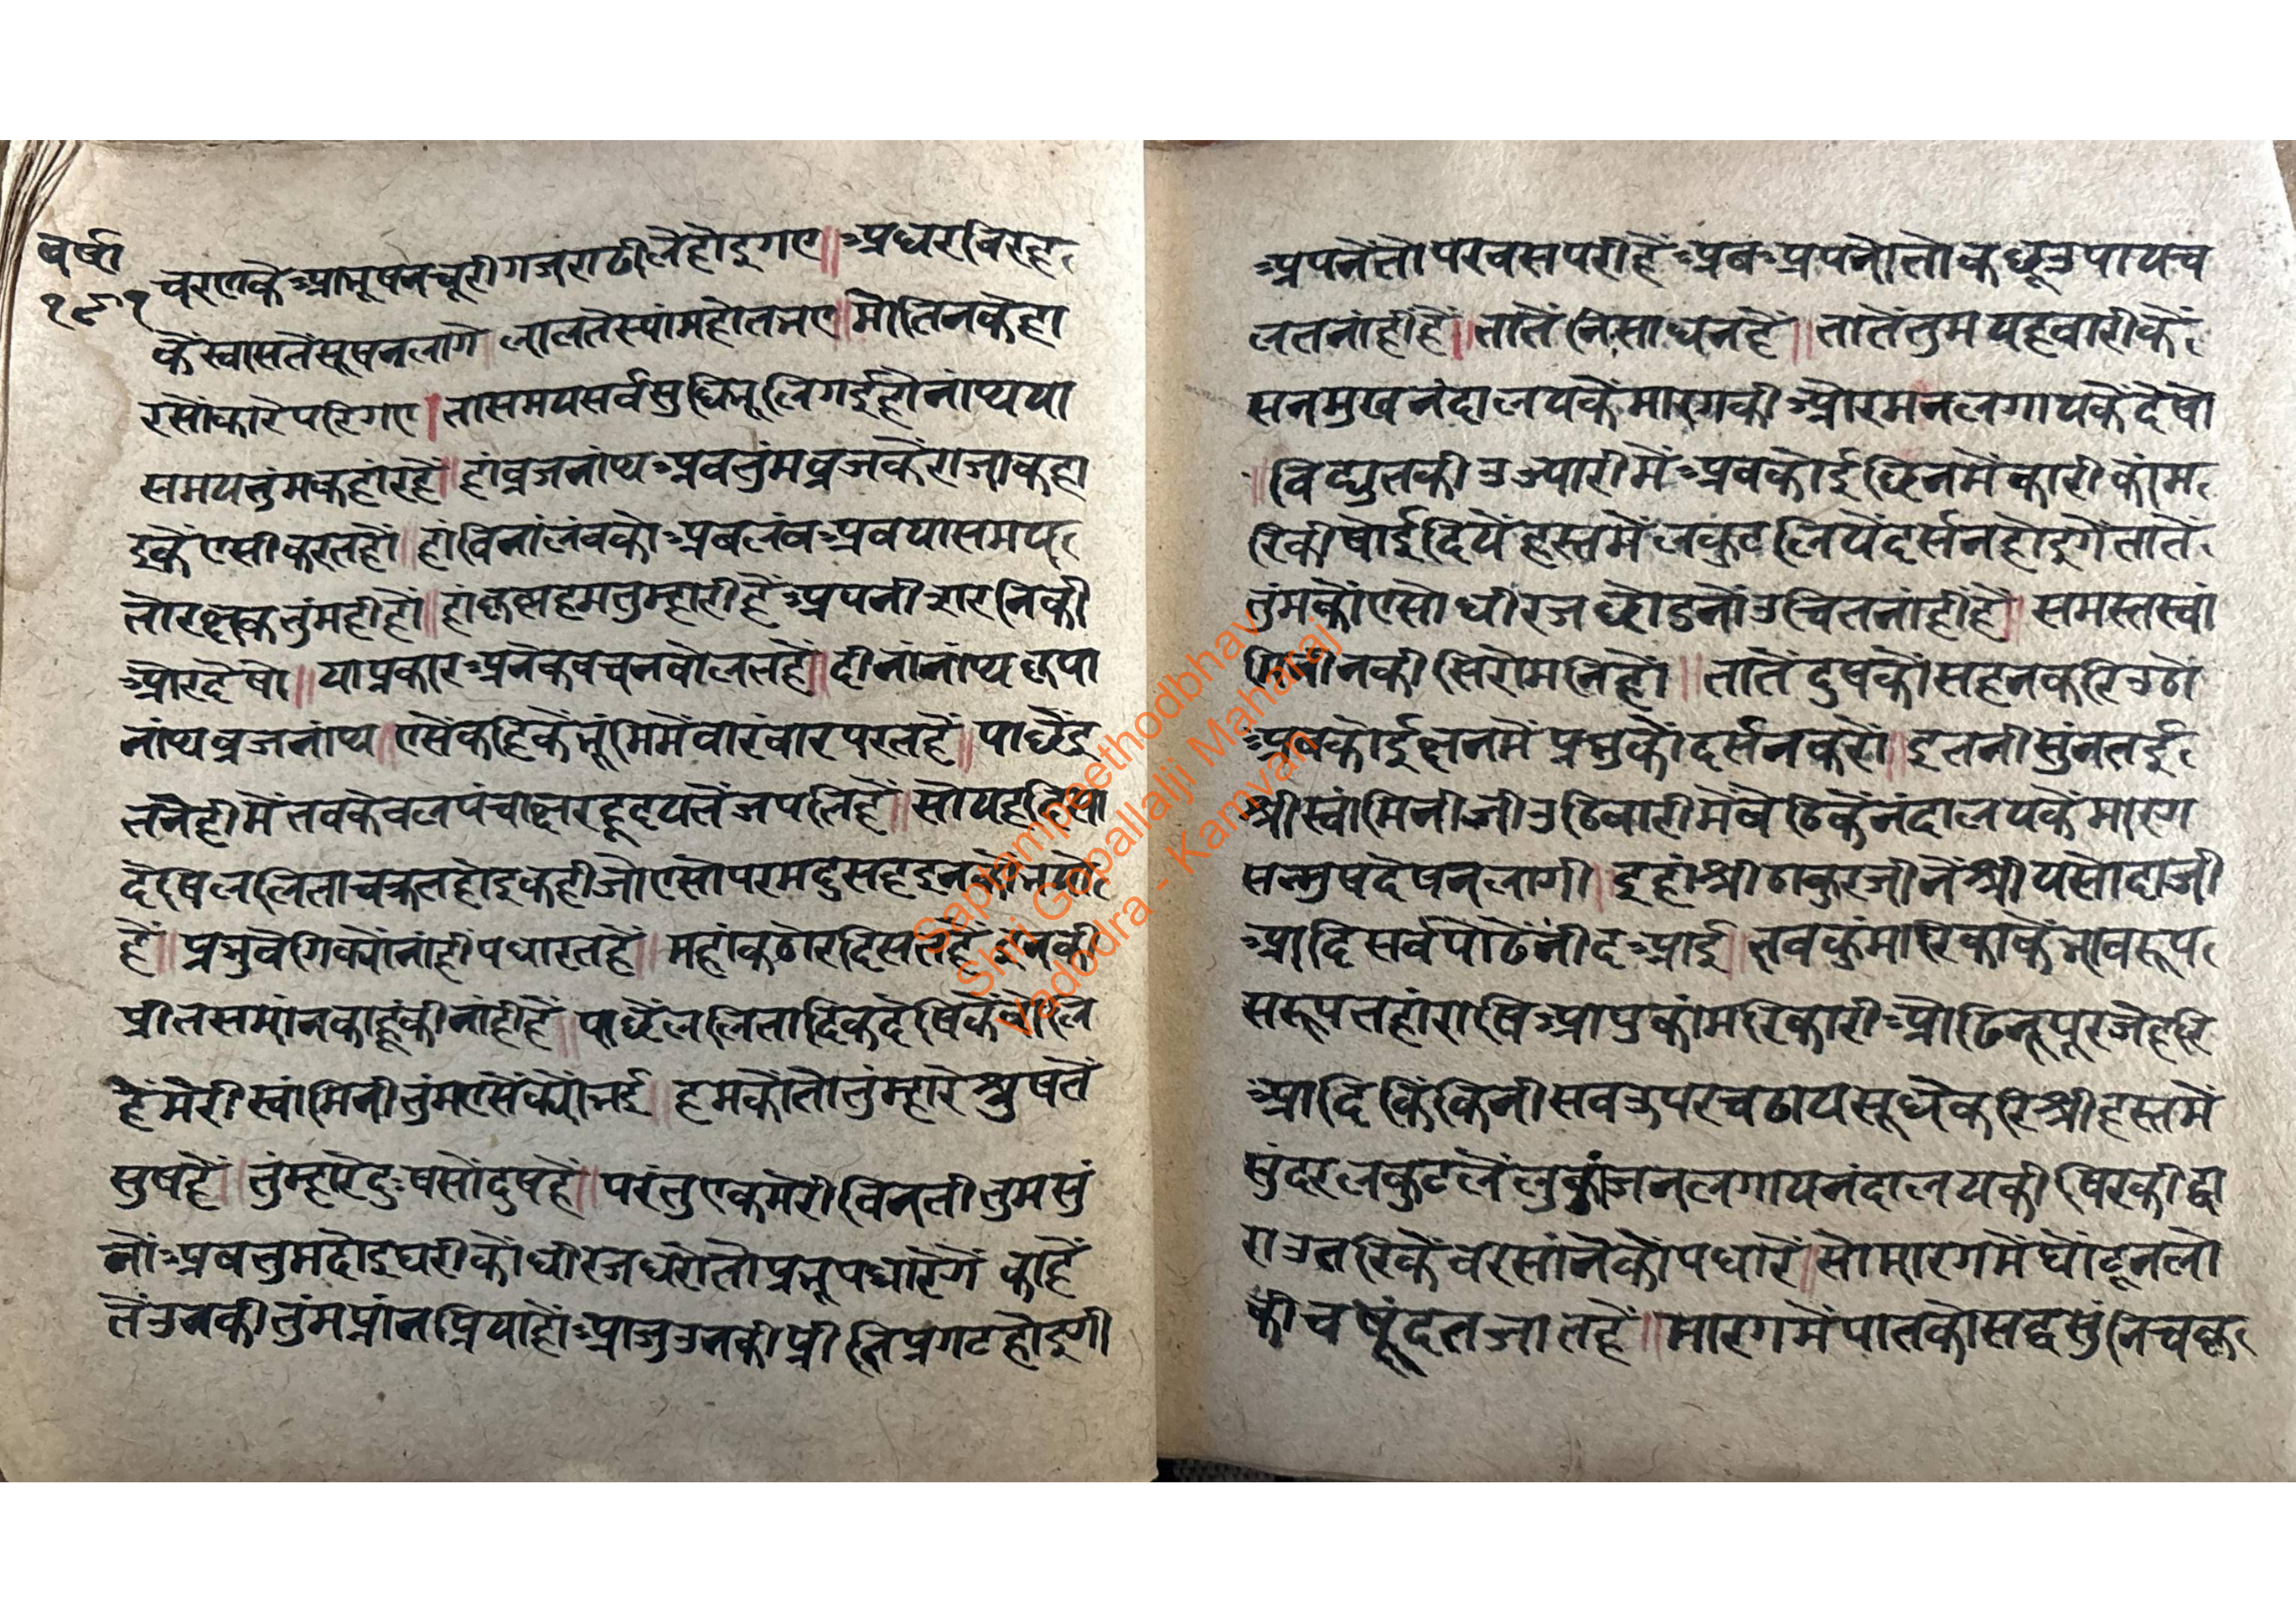 वर्षा
१९१
चरणकेआभूषनचूरीगजराढीलेहोइगए॥अधरविरह
केस्वासतेंसूषनलागे लालतेस्यांमहोतभए॥मोतिनकेहा
रसोंकारेपरिगए।तासमयसर्वसुधिभूलिगईहोनांथया
समयतुंमकहांरहें॥हांव्रजनांथअवतुंमव्रजकेराजाकहा
इकेंएसीकरतहों॥हांविनांलंवकोअवलंवअवयासमय
तोरक्षकतुंमहीहौ॥हांकृष्णहमतुम्हारीहैंअपनीओरनिकी
ओरदेषो॥याप्रकारअनेकवचनवोलतहें॥दीनांनांथकृपा
नांथव्रजनांथ॥एसेंकहिकेंभूंमिमेंवारंवारपरतहें॥पाछेंइ
तनेंहीमेंतवकेवलपंचाक्षरहृदयतेंजपतिहें॥सोयहक्रिपा
देषिललिताचक्रतहोइकहीजोएसोपरमदुसहइनकोतपो
हें॥प्रभुवेगिक्योंनांहीपधारतहें॥महांकठोरदिसतहेंइनकी
प्रीतसमांनकाहूंकीनांहीहें॥पाछेंललितादिकदेषिकेंवोलि
हेंमेरीस्वांमिनीतुंमएसेंक्योंभई॥हमकोंतोतुंम्हारेश्रुषतें
सुषहें॥तुंम्हारेदुःषसोंदुषहें॥परंतुएकमेरीविनतीतुमसुं
नोंअवतुमदोइघरीकोधीरजधरोतोप्रभूपधारेंगें काहे
तेंउनकीतुंमप्रांनप्रियाहोंआजुउनकीप्रीतिप्रगटहोइगी
अपनेंतोपरवसपरीहेंअवअपनोतोकछूउपायच
लतनांहीहें॥तातेंनिसाधनहें॥तातेंतुमयहवारीकें
सनमुखनंदालयकेंमारगकीओरमनलगायकेंदेषो
॥विद्युतकीउज्यारीमेंअवकोईछिनमेंकारीकांम
रिकीषोईदियेंहस्तमेंलकुटलियेंदर्सनहोइगेंतातें
तुंमकोंएसोधीरजछोडनोंउचितनांहीहें॥समस्तस्वां
मिनीनकीसिरोमनिहों॥तातेंदुषकोंसहनकरिउठो
अवकोईक्षनमेंप्रभुकोंदर्सनकरों॥इतनीसुंनतई
श्रीस्वांमिनीजीउठिवारीमेंवेठिकेंनंदालयकेंमारग
सन्मुषदेषनलागी।इहांश्रीठाकुरजीनेंश्रीयसोदाजी
आदिसर्वपोढेंनींदआई॥तवकुंमारिकाकेंभावरूप
सरूपतहांराषिआपुकांमरिकारीओढिनूपूरजेहरि
आदिकिंकिनीसवउपरचढायसूधेकरिश्रीहस्तमें
सुंदरलकुटलेंलुकांजनलगायनंदालयकीषिरकीद्वा
राउतरिकेंवरसांनेकोंपधारें॥सोमारगमेंघोंटूनलो
कीचषूंदतजातहें॥मारगमेंपातकोसद्वसुंनिचक्र